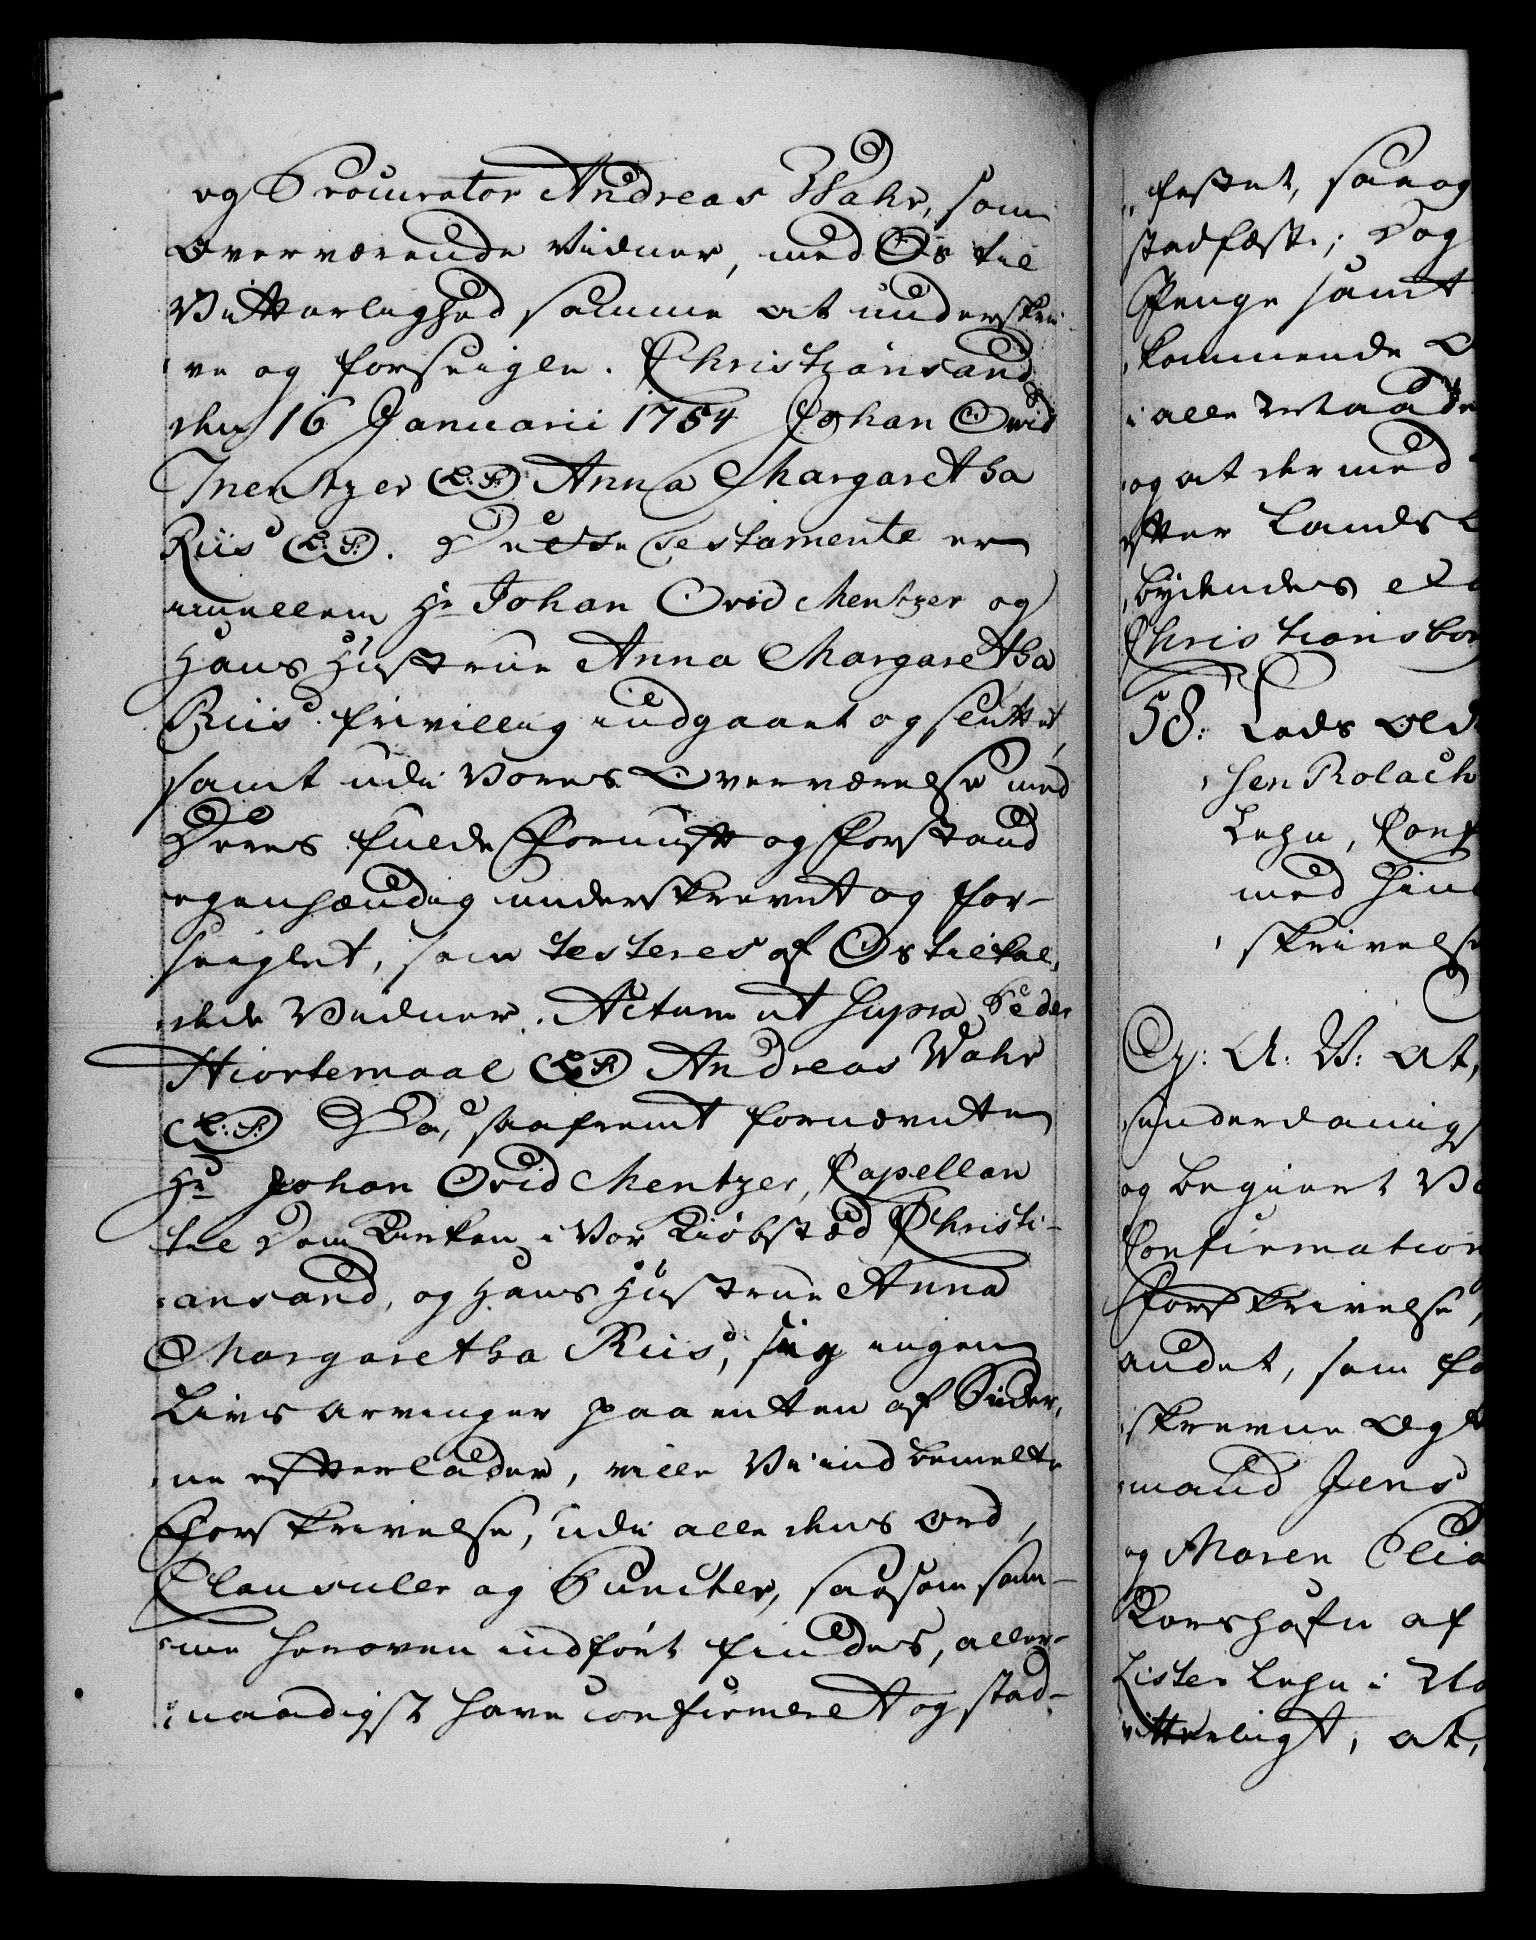 og Procurator Andreas Wahr, som
overværende Vidner, med Os til
Vitterlighed samme at underskri-
ve og forseigle. Christiansand
den 16 Januarii 1754 Johan Ovid
Mentzer (L.S.) Anna Margaretha
Riis (L.S.). Dette Testamente er
imellem Hr Johan Ovid Mentzer og
Hans Hustrue Anna Margaretha
Riis frivillig indgaaet og sluttet,
samt udi Vores Overværelse med
Deres fulde Fornuft og Forstand
egenhændig underskrevet og for-
seiglet, som testeres af Os tilkal-
dede Vidner. Actum ut Supra Peder
Hiortemaal (L.S.) Andreas Wahr
(L.S.) Da, saafremt fornævnte
Hr Johan Ovid Mentzer, Capellan
til Dom Kirken i Vor Kiøbstæd Christi-
ansand, og Hans Hustrue Anna
Margaretha Riis, sig ingen
Livs Arvinger paa enten af Sider-
ne efterlader, ville Vi ind bemelte
Forskrivelse, udi alle dens Ord,
Clausuler og Puncter, saasom sam-
me heroven indført findes, aller-
naadigst have confirmeret og stad-
festet, saa og
stadfeste; Dog
Penge samt
kommende
i alle Maade
og at dermed
efter Lands
bydendes
Christiansbor
58: Lads
sen Rolach
Lehn, Conf
med hin
skrivelse
C: A: V: At,
underdanigs
og begiert
Confirmation
Forskrivelse,
andet, som
skrevne
mand Jens
og Maren Elia
Korshafn af
Lister Lehn i
vitterligt, at,